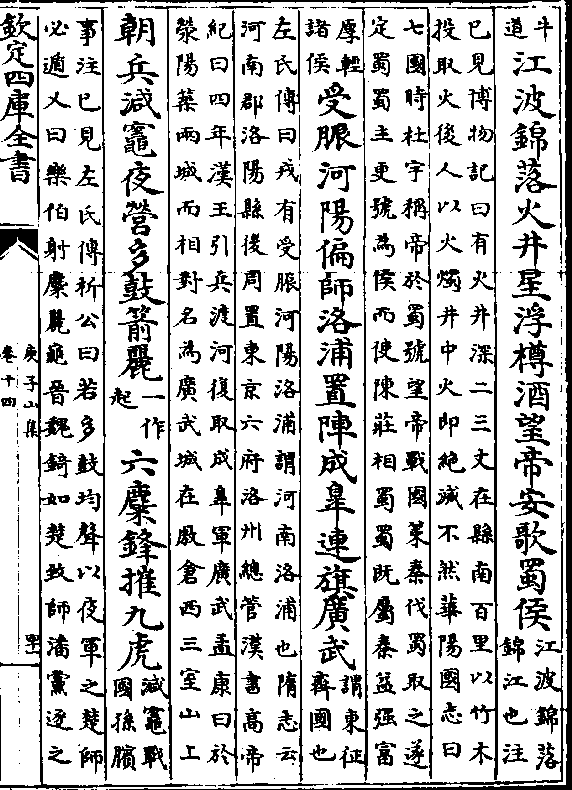 斗
道
江波錦落火井星浮樽酒望帝安歌蜀侯
江波錦落
錦江也注
已見博物記曰有火井深二三丈在縣南百里以竹木
投取火後人以火燭井中火即絶滅不然華陽國志曰
七國時杜宇稱帝於蜀號望帝戰國策秦伐蜀取之遂
定蜀蜀主更號為侯而使陳莊相蜀蜀既屬秦益强富
厚輕
諸侯
受脤河陽偏師洛浦置陣成皐連旗廣武
謂東征
齊國也
左氏傳曰戎有受脤河陽洛浦謂河南洛浦也隋志云
河南郡洛陽縣後周置東京六府洛州總管漢書高帝
紀曰四年漢王引兵渡河復取成皐軍廣武孟康曰於
滎陽築兩城而相對名為廣武城在敖倉西三室山上
朝兵減竈夜營多鼓箭麗
一作
起
六麋鋒摧九虎
減竈戰
國孫臏
事注已見左氏傳析公曰若多鼓均聲以夜軍之楚師
必遁又曰樂伯射麋麗龜晉魏錡如楚致師潘黨逐之
欽定四庫全書
庾子山集
卷十四